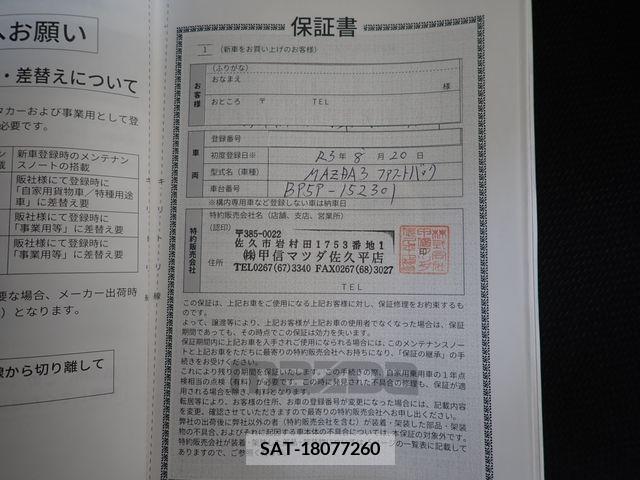 へお願い
・差替えについて
タカーおよび事業用として登
必要です。
新車登録時のメンテナン
スノートの搭載
販社様にて登録時に
「自家用貨物車／特種用途
車」に差替え要
販社様にて登録時に
「事業用等」に差替え要
販社様にて登録時に
「事業用等」に差替え要
要な場合、メーカー出荷時
）となります。
線から切り離して
キリトリ線
保証書
1 （新車をお買い上げのお客様）
お客様
（ふりがな）
おなまえ 様
おところ 〒 TEL
車両
登録番号
初度登録日※ R3年 8月 20日
型式名（車種） MAZDA3 ファストバック
車台番号 BP5P-152301
※構内専用車など登録しない車は納車日
特約販売会社
特約販売会社名（店舗、支店、営業所）
（認印）
住所
〒385-0022
佐久市岩村田1753番地1
㈱甲信マツダ佐久平店
TEL0267(67)3340 FAX0267(68)3027
印
TEL
この保証は、上記お車をご使用になる上記お客様に対し、保証修理をお約束するも
のです。
よって、譲渡等により、上記お客様が上記お車の使用者でなくなった場合は、保証
期間であっても、その時点でこの保証は効力を失います。
保証期間内に上記お車を入手されご使用になられる場合には、このメンテナンスノー
トと上記お車をただちに最寄りの特約販売会社へお持ちになり、「保証の継承」の手
続きをお受けください。
これにより残りの期間を保証いたします。この手続きの際、自家用乗用車の1年点
検相当の点検（有料）が必要です。この時に発見された不具合の修理も、保証が適
用される場合を除き、有料となります。
転居等により、お客様の住所、お車の登録番号が変更になった場合には、記載内容
を変更、確認させていただきますので最寄りの特約販売会社へお申し出ください。
弊社の出荷後に弊社以外の者（特約販売会社を含む）が装着・架装した部品・架装
物の不具合、およびそれに起因する車本体の不具合については、本保証の対象外です。
特約販売会社が装着・架装
ページの一覧表に記載して
ありますので、ご参照く
SAT-18077260